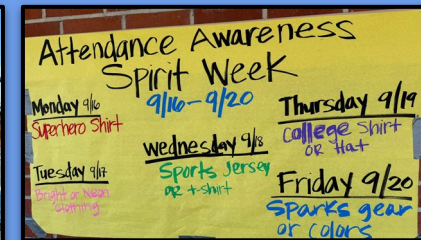 Attendance Awareness
Spirit Week
9/16-9/20
Monday 9/16
Superhero Shirt
Tuesday 9/17
Bright or Neon
Clothing
Wednesday 9/18
Sports Jersey
OR t-shirt
Thursday 9/19
College Shirt
OR Hat
Friday 9/20
Sparks gear
or colors